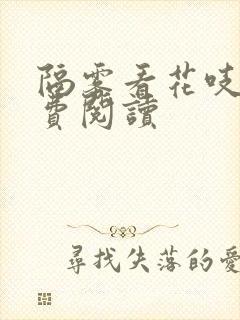 隔雾看花吱
費閱讀
尋找失落的愛